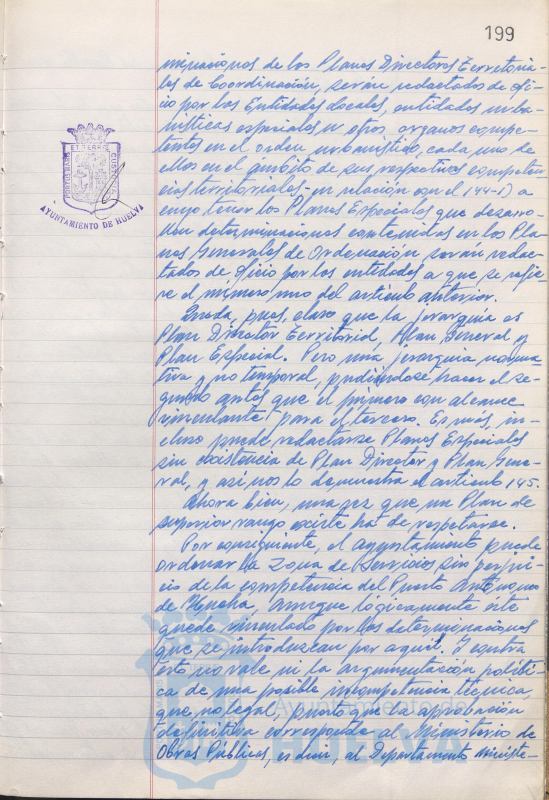 199
minaciones de los Planes Directores Territoria-
les de Coordinación, serán redactados de ofi-
cio por las Entidades Locales, entidades urba-
nísticas especiales u otros órganos compe-
tentes en el orden urbanístico, cada uno de
ellos en el ámbito de sus respectivas competen-
cias territoriales - en relación con el 144-1) a
cuyo tenor los Planes Especiales que desarro-
llen determinaciones contenidas en los Pla-
nes Generales de Ordenación serán redac-
tados de oficio por las entidades a que se refie-
re el número uno del artículo anterior.
Queda, pues, claro que la jerarquía es
Plan Director Territorial, Plan General y
Plan Especial. Pero una jerarquía norma-
tiva y no temporal, pudiéndose hacer el se-
gundo antes que el primero con alcance
vinculante para el tercero. Es más, in-
cluso puede redactarse Planes Especiales
sin existencia de Plan Director y Plan Gene-
ral, y así nos lo demuestra el artículo 145.
Ahora bien, una vez que un Plan de
superior rango existe ha de respetarse.
Por consiguiente, el Ayuntamiento puede
ordenar la zona de Servicios sin perjui-
cio de la competencia del Puerto Autónomo
de Huelva, aunque lógicamente este
quede vinculado por las determinaciones
que se introduzcan por aquel. Y contra
esto no vale ni la argumentación políti-
ca de una posible incompetencia técnica,
que no legal, puesto que la aprobación
definitiva corresponde al Ministerio de
Obras Públicas, es decir, al Departamento ministe-
AYUNTAMIENTO DE HUELVA
Ayuntamiento de
HUELVA